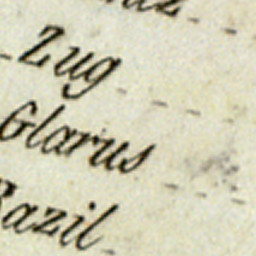 Zug
Glarus
Bazil